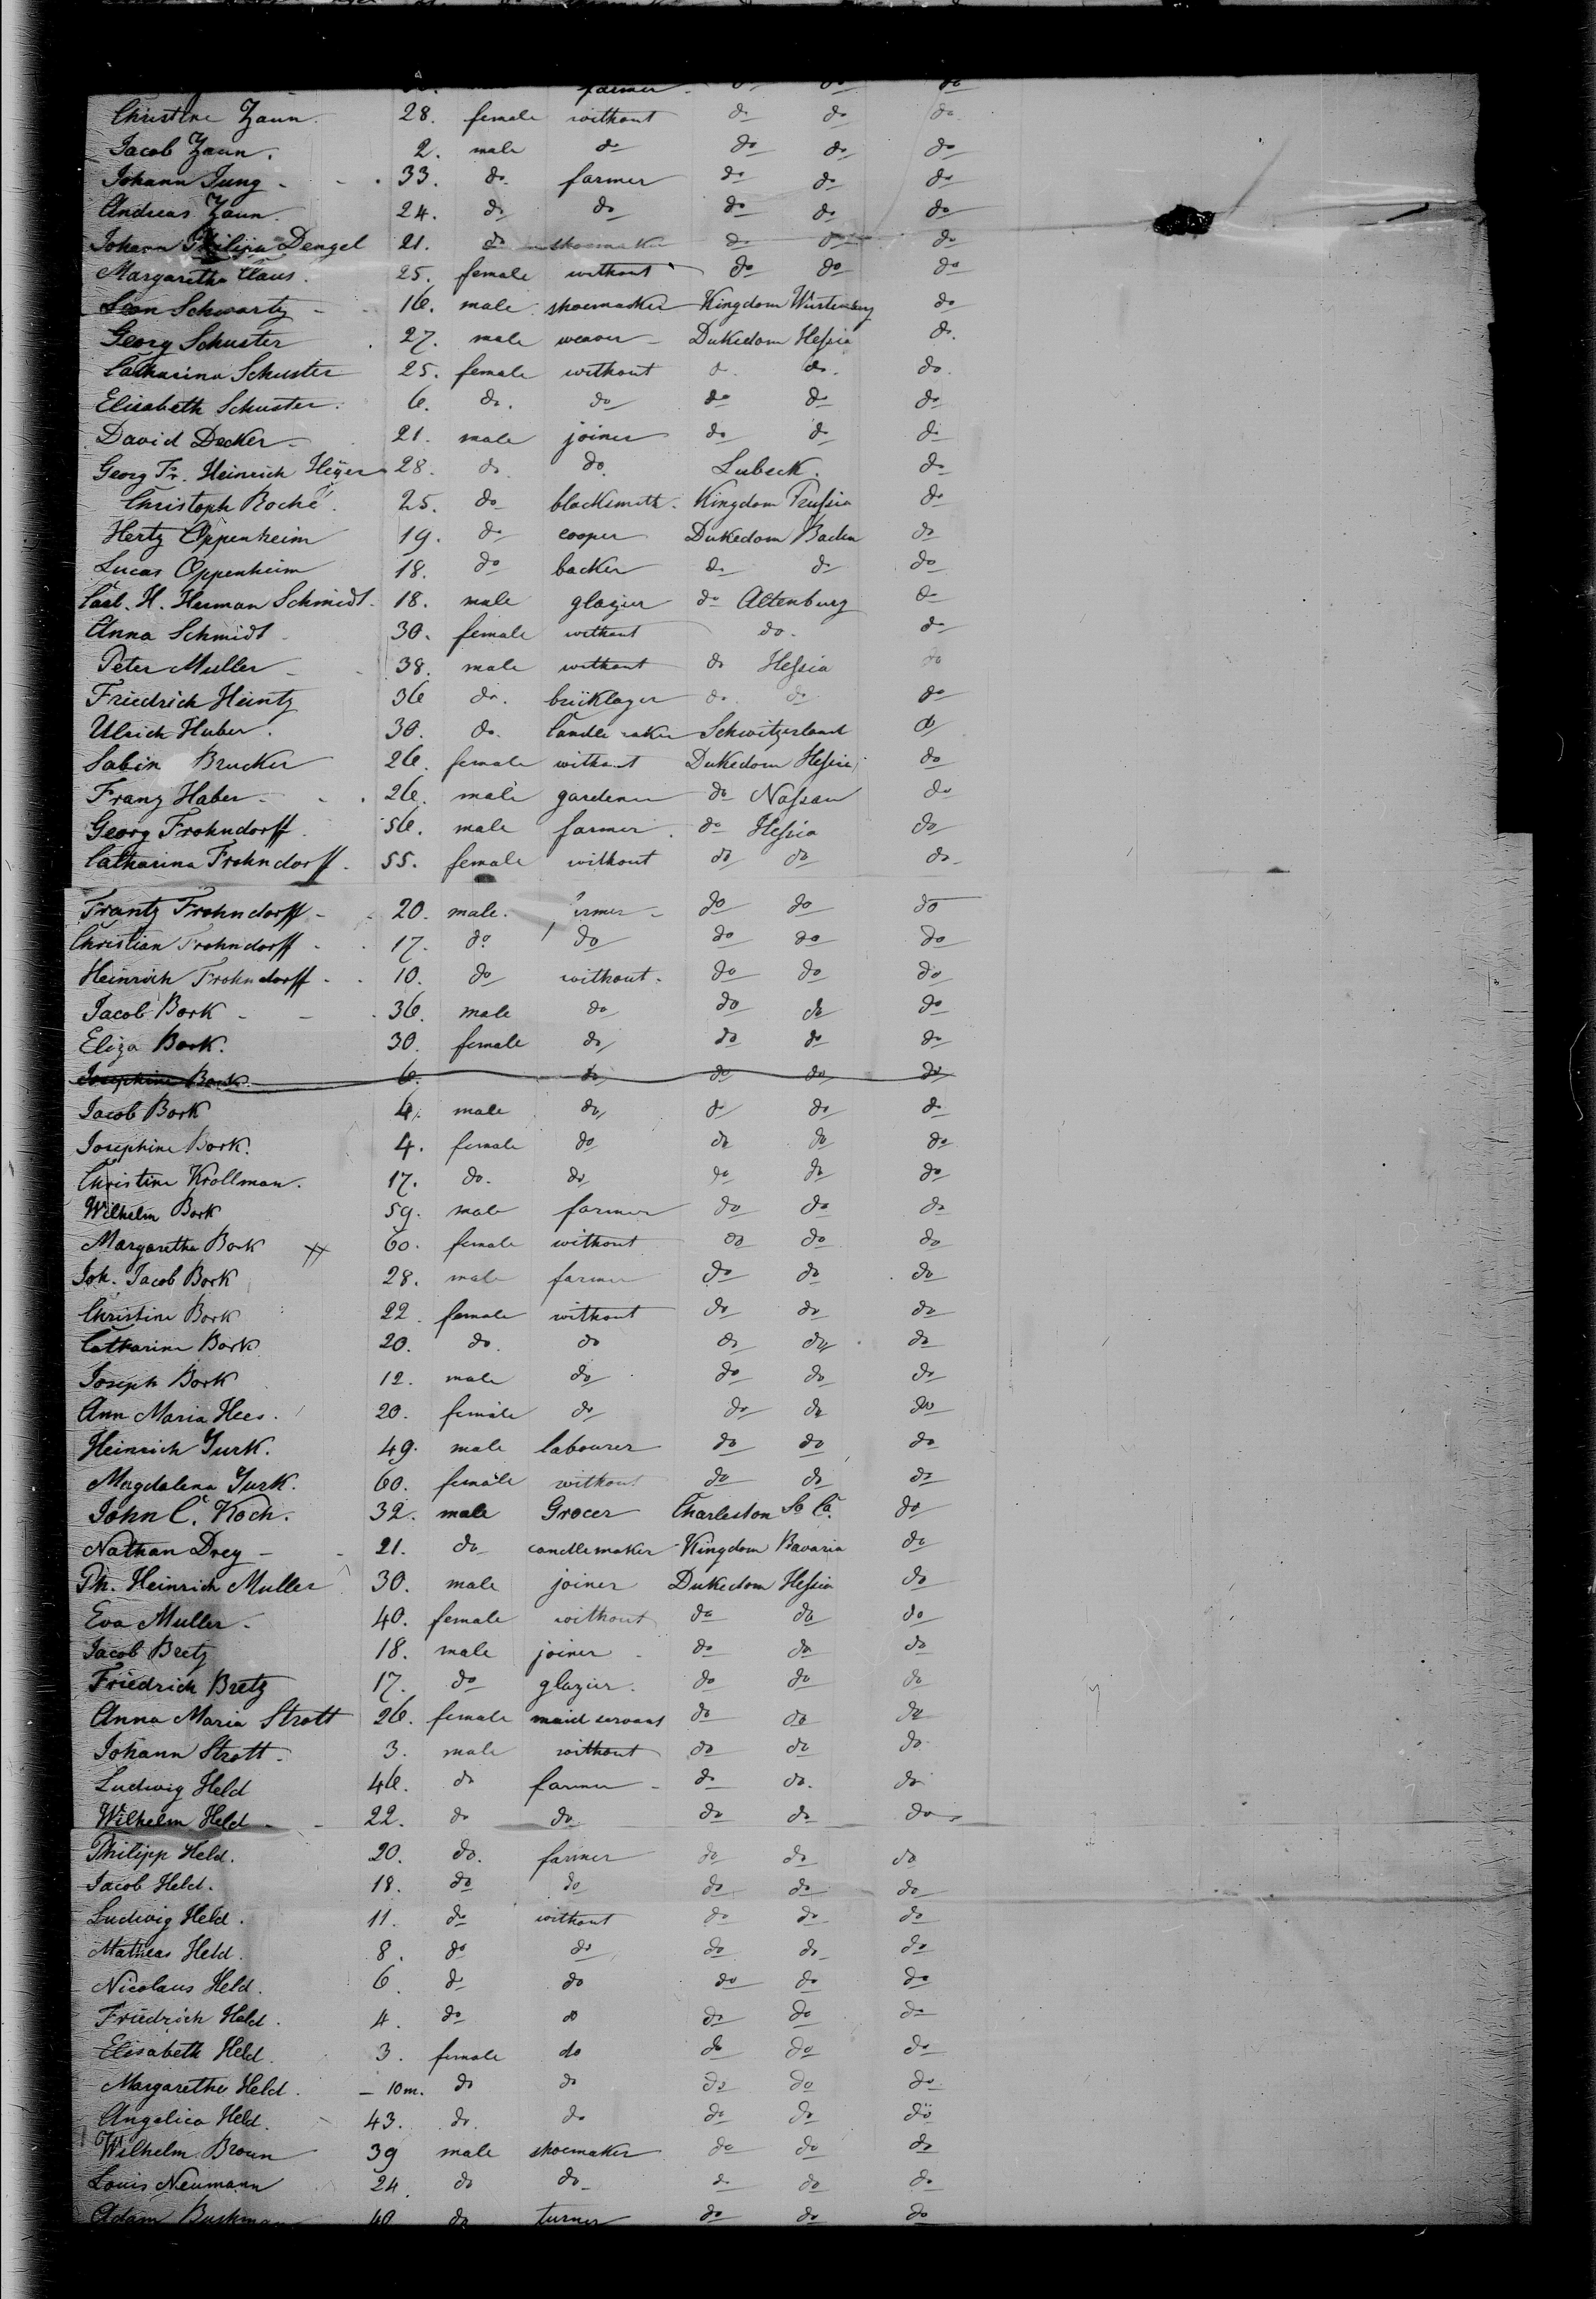 farmer do do do
Christine Zaun. 28. female without do do do
Jacob Zaun. 2. male do do do do
Johann Jung 33. do. farmer do do do
Andreas Zaun. 24. do do do do do
Johann Philipp Dengel 21. do shoemaker do do do
Margaretha Claus. 25. female without do do do
Leon Schwartz 16. male shoemacker Kingdom Würtemberg do
Georg Schuster 27. male weaver Dukedom Hessia do.
Catharina Schuster 25. female without do. do. do.
Elisabeth Schuster. 6. do. do do do do
David Decker 21. male joiner do do do
Georg Fr. Heinrich Heÿer 28. do. do. Lubeck. do
Christoph Roché. 25. do blacksmith. Kingdom Prussia do
Hertz Oppenheim 19. do cooper Dukedom Baden do
Lucas Oppenheim 18. do backer do do do
Carl. H. Herman Schmidt. 18. male glazier do Altenburg do
Anna Schmidt 30. female without do. do
Peter Muller 38. male without do Hessia do
Friedrich Heintz 36 do. bricklayer do. do do
Ulrich Huber. 30. do. Candle maker Schwitzerland do
Sabin Brucker 26. female without Dukedom Hessia do
Franz Haber 26. male gardener do Nassau do
Georg Frohndorff. 56. male farmer. do Hessia do
Catharina Frohndorff. 55. female without do do do
Frantz Frohndorff 20. male. farmer do do do
Christian Frohndorff 17. do. do do do do
Heinrich Frohndorff 10. do without. do do do
Jacob Bork 36. male do do do do
Eliza Bork. 30. female do do do do
Josephine Bork 6. do do do do
Jacob Bork 4. male do do do do
Josephine Bork. 4. female do do do do
Christine Krollman. 17. do. do do do do
Wilhelm Bork 59. male farmer do do do
Margaretha Bork 60. female without do do do
Joh. Jacob Bork 28. male farmer do do do
Christine Bork 22. female without do do do
Catharine Bork 20. do. do do do do
Joseph Bork 12. male do do do do
Ann Maria Hees. 20. female do do do do
Heinrich Jurk. 49. male labourer do do do
Magdalena Jurk. 60. female without do do do
John C. Koch. 32. male Grocer Charleston So Ca. do
Nathan Drey 21. do candlemaker Kingdom Bavaria do
Ph. Heinrich Muller 30. male joiner Dukedom Hessia do
Eva Muller. 40. female without do do do
Jacob Bretz 18. male joiner do do do
Friedrich Bretz 17. do glazier. do do do
Anna Maria Strott 26. female maid servant do do do
Johann Strott. 3. male without do do do
Ludwig Held 46. do farmer do do. do
Wilhelm Held 22. do do do do do
Philipp Held. 20. do. farmer do do do
Jacob Held. 18. do do do do do
Ludwig Held. 11. do without do do do
Matheas Held. 8. do do do do do
Nicolaus Held. 6. do do do do do
Friedrich Held. 4. do do do do do
Elisabeth Held. 3. female do do do do
Margaretha Held. 10m. do do do do do
Angelica Held. 43. do. do do do do
Wilhelm Broun 39 male shoemaker do do do
Louis Neumann 24. do do do do do
Adam Buskman 40 do turner do do do